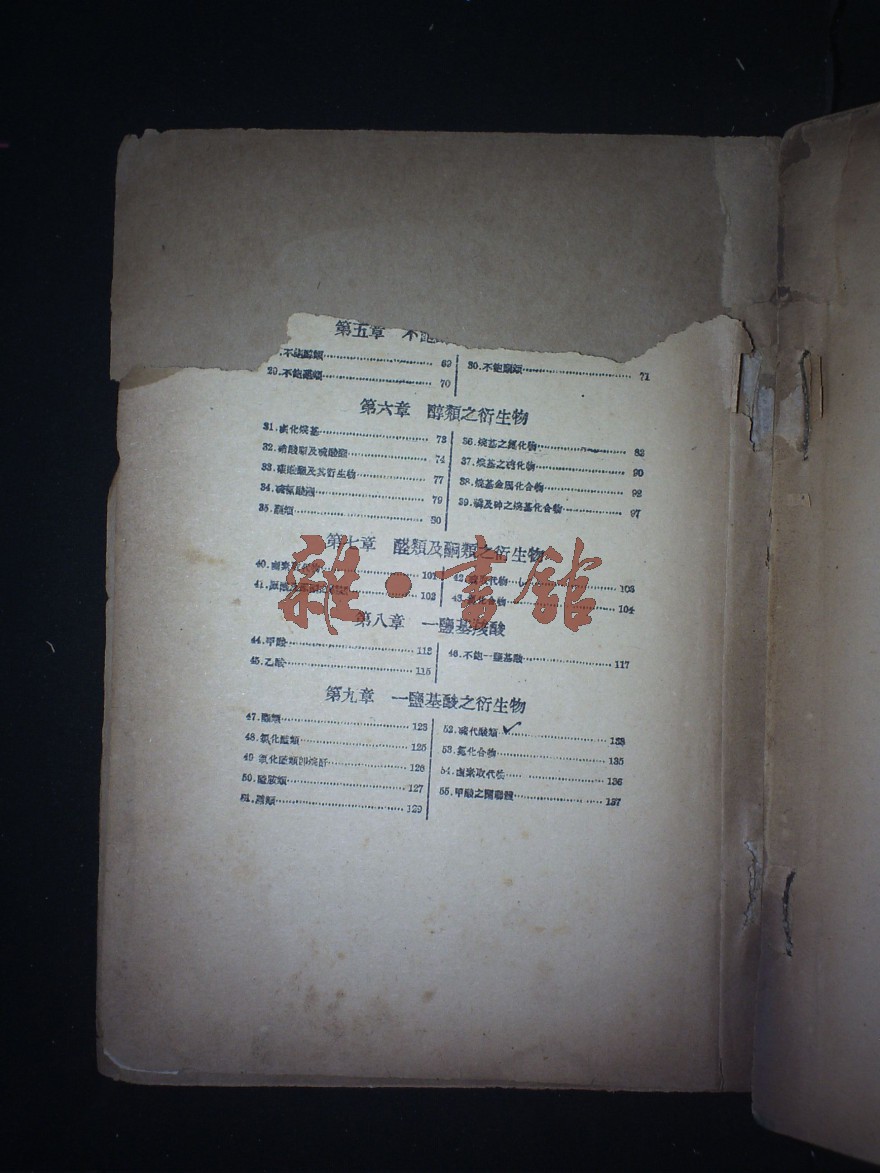 第五章 不飽
不飽醇類 69
29.不飽醛類 70
30.不飽酮類 71
第六章 醇類之衍生物
31.鹵化烷基 73
32.硝酸脂及硫酸脂 74
33.及其衍生物 77
34. 79
35.類 80
36.烷基之氮化物 83
37.烷基之硝化物 90
38.烷基金屬化合物 92
39.磷及砷之烷基化合物 97
第七章 醛類及酮類之衍生物
40.鹵素取代物 101
41. 102
42.取代物 103
43.化合物 104
第八章 一鹽基羧酸
44.甲酸 112
45.乙酸 115
46.不飽一鹽基酸 117
第九章 一鹽基酸之衍生物
47.酯類 123
48.氯化醯類 125
49.氧化醯類即烷酐 126
50.醯胺類 127
51.類 129
52.硫代酸類 133
53.氮化合物 135
54.鹵素取代 136
55.甲酸之關聯體 137
雜·書館